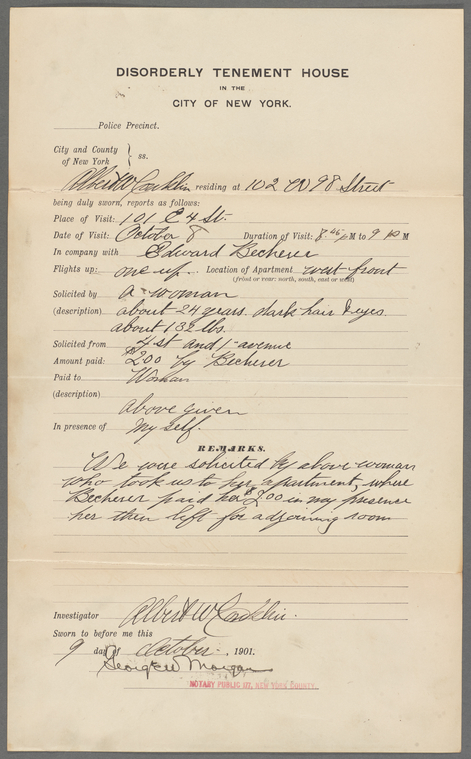 DISORDERLY TENEMENT HOUSE
IN THE
CITY OF NEW YORK.
Police Precinct.
City and County
of New York } ss.
Albert W Conklin residing at 102 W 98 Street
being duly sworn, reports as follows:
Place of Visit: 101 E 4 St.
Date of Visit: October 8 Duration of Visit: 8 45 P M to 9 PM
In company with Edward Becherer
Flights up: one up. Location of Apartment west front
(front or rear: north, south, east or west)
Solicited by a woman
(description) about 24 years. dark hair & eyes
about 132 lbs.
Solicited from 4 st and 1- avenue
Amount paid: $2.00 by Becherer
Paid to Woman
(description)
above given
In presence of my self.
REMARKS.
We were solicited by above woman
who took us to her apartment, where
Becherer paid her $2.00 in my presence
her then left for adjoining room
Investigator Albert W Conklin.
Sworn to before me this
9 day of October, 1901.
George W Morgan
NOTARY PUBLIC NEW YORK COUNTY